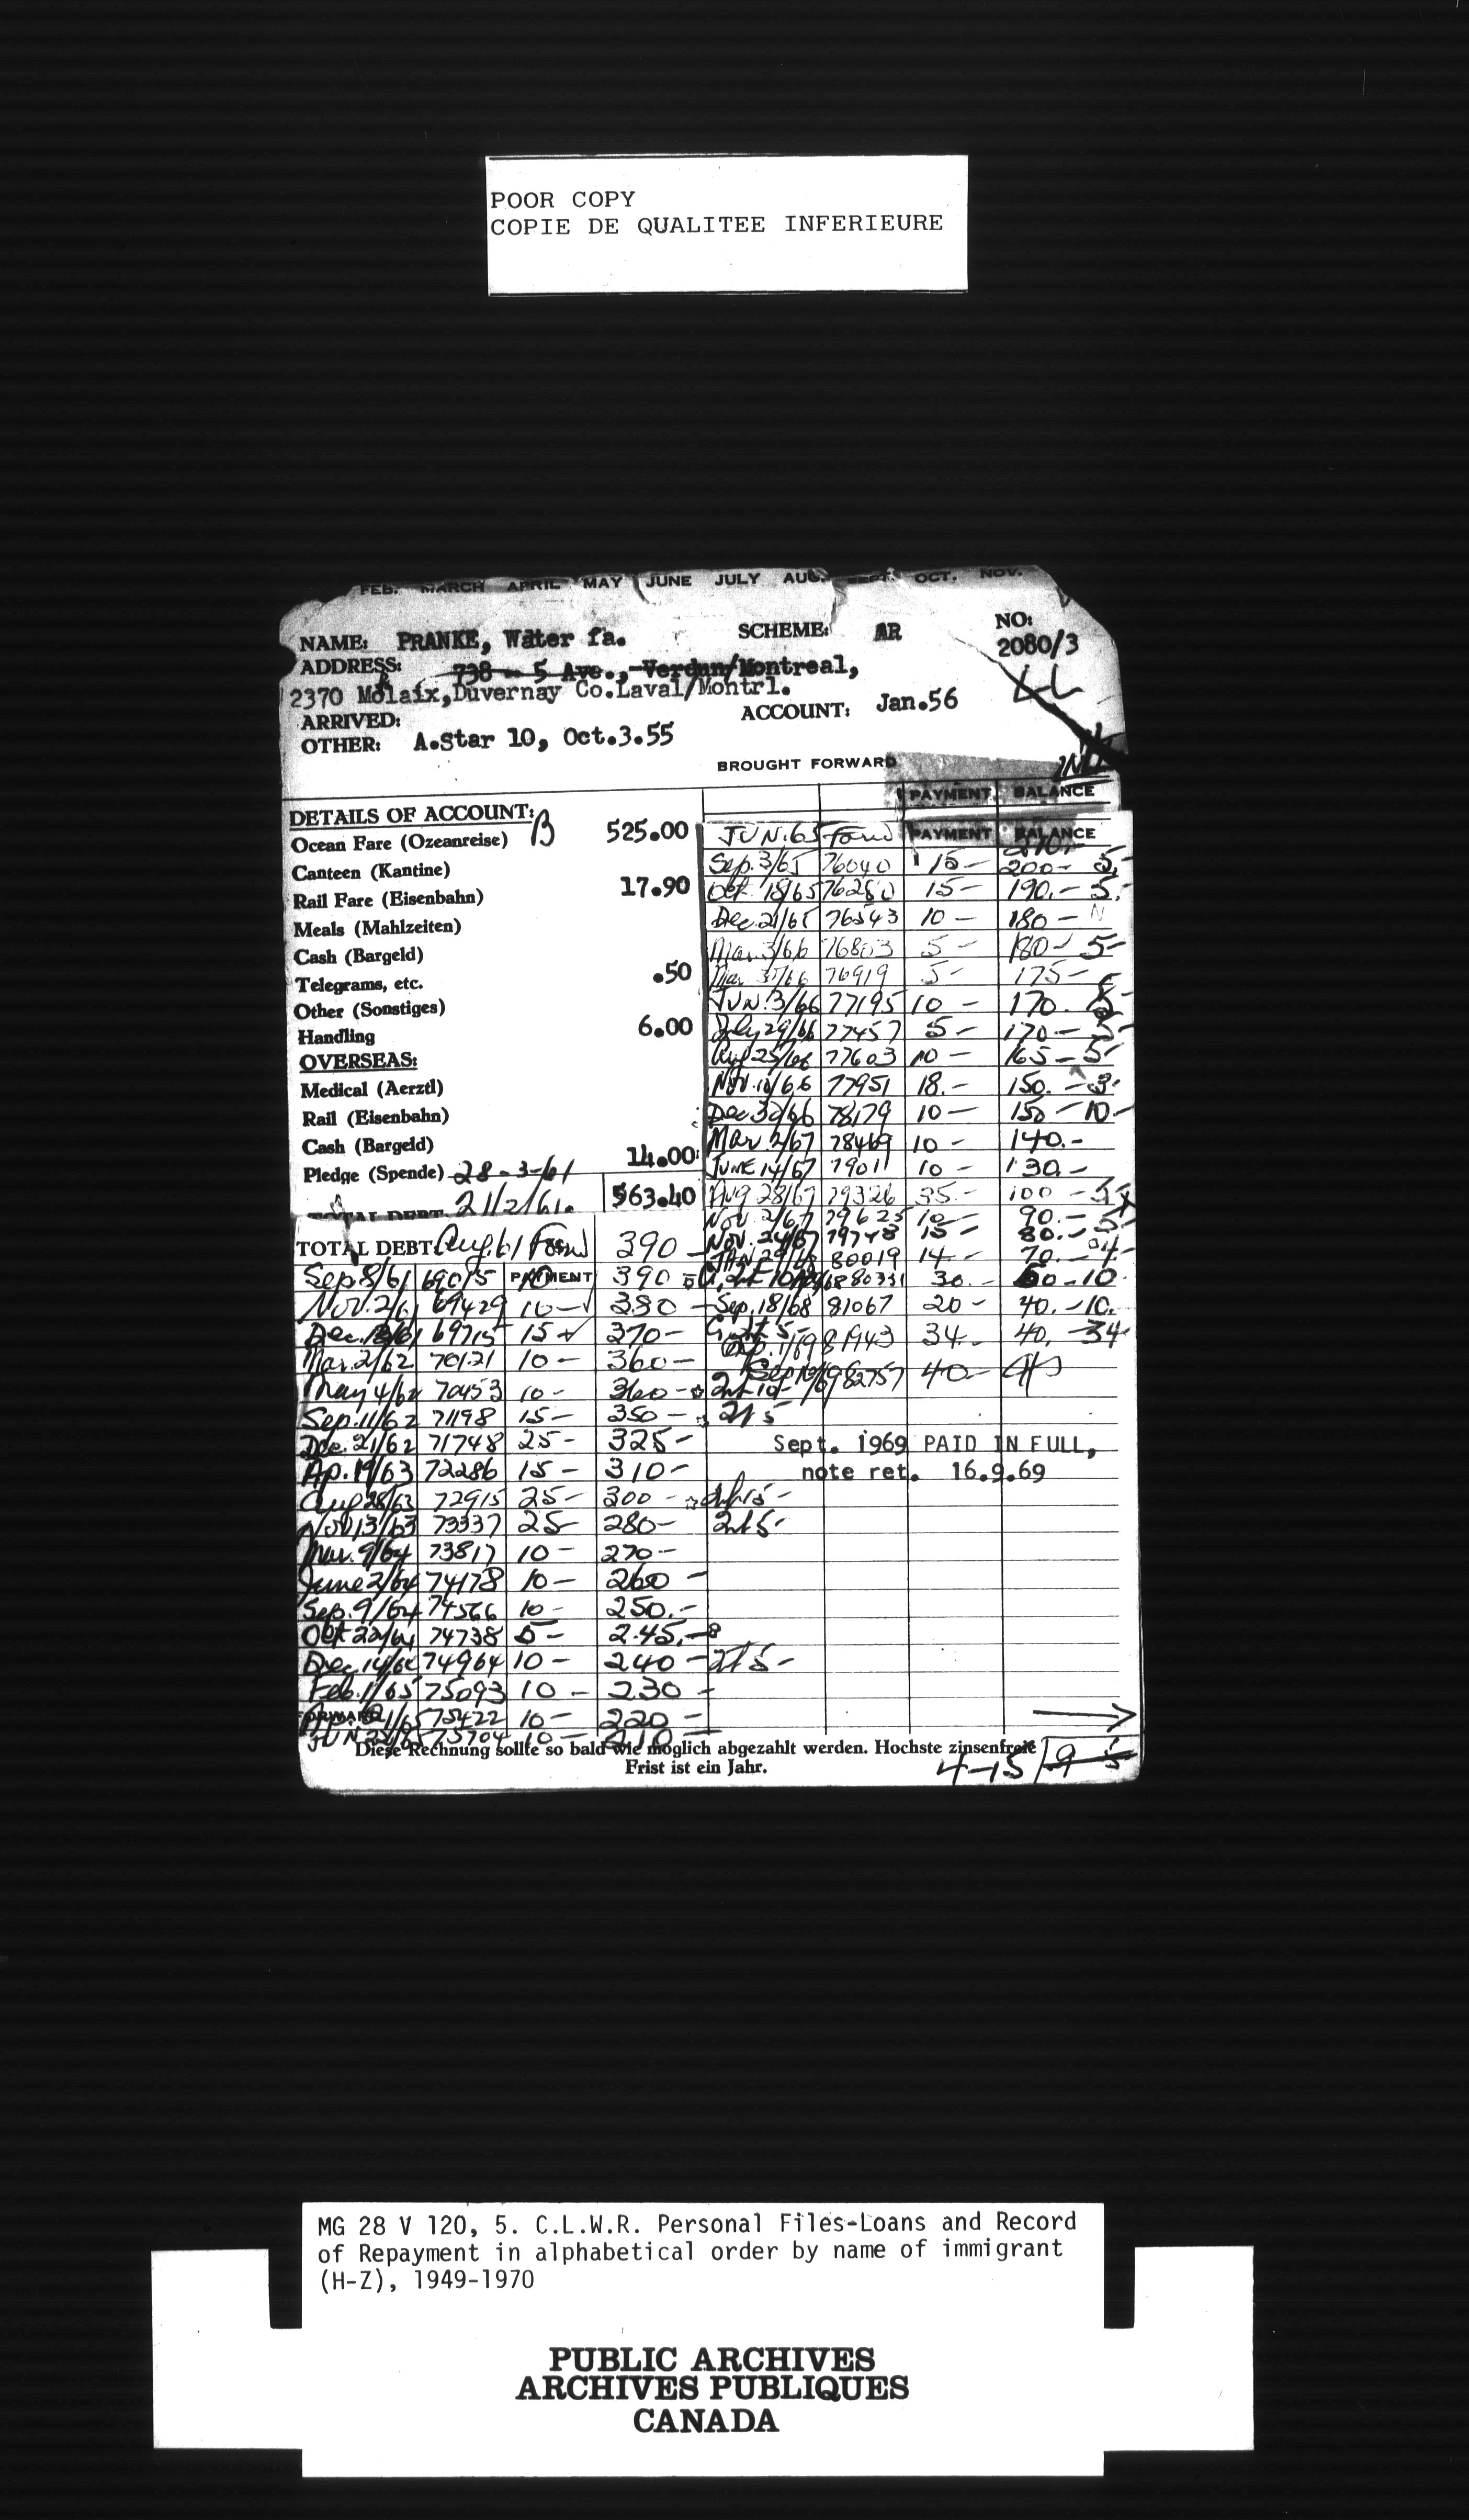 POOR COPY
COPIE DE QUALITEE INFERIEURE
FEB. MARCH APRIL MAY JUNE JULY AUG. SEPT. OCT. NOV.
NAME: PRANKE, Water fa. SCHEME: AR NO: 2080/3
ADDRESS: 738 - 5 Ave., Verdun/Montreal,
2370 Molaix, Duvernay Co.Laval/Montrl.
ARRIVED: ACCOUNT: Jan.56
OTHER: A.Star 10, Oct.3.55
BROUGHT FORWARD
PAYMENT BALANCE
DETAILS OF ACCOUNT: B
Ocean Fare (Ozeanreise) 525.00
Canteen (Kantine)
Rail Fare (Eisenbahn) 17.90
Meals (Mahlzeiten)
Cash (Bargeld)
Telegrams, etc. .50
Other (Sonstiges)
Handling 6.00
OVERSEAS:
Medical (Aerztl)
Rail (Eisenbahn)
Cash (Bargeld)
Pledge (Spende) 28-3-61 14.00
TOTAL DEBT 21/2/61. 563.40
TOTAL DEBT: Aug. 61 Forw 390 -
Sep. 8/61 69015 PAYMENT 10 390
Nov. 2/61 69429 10 - 380 -
Dec. 69715 15 370 -
Mar. 2/62 70121 10 - 360 -
May 4/62 70453 10 - 360 -
Sep. 11/62 71198 15 - 350 -
Dec. 21/62 71748 25 - 325 -
Ap. 19/63 72286 15 - 310 -
Aug 28/63 72915 25 - 300 -
Nov 13/63 73337 25 - 280 -
Mar. 9/64 73817 10 - 270 -
June 2/64 74178 10 - 260 -
Sep. 9/64 74566 10 - 250. -
Oct 22/64 74738 5 - 245. -
Dec. 14/64 74964 10 - 240 -
Feb. 1/65 75093 10 - 230 -
FORWARD 21/65 75422 10 - 220 -
JUN 75704 10 - 210 -
JUN. 65 Forw PAYMENT BALANCE
210.
Sep. 3/65 76040 15 - 200 - 5. -
Oct. 18/65 76280 15 - 190. - 5. -
Dec. 21/65 76543 10 - 180 - N
Mar. 3/66 76803 5 - 180 - 5 -
Mar. 76919 5 - 175 -
JUN. 3/66 77195 10 - 170.
July 29/66 77457 5 - 170 - 5 -
Aug 25/66 77603 10 - 165 - 5 -
Nov. 77951 18. - 150. - 3.
Dec 30/66 78179 10 - 150 - 10 -
Mar. 2/67 78469 10 - 140. -
JUNE 14/67 79011 10 - 130. -
Aug 28/67 79326 35. - 100 -
Nov. 2/67 79625 10 - 90. - 5.
Nov. 24/67 79748 15 - 80. -
JAN 80019 14 - 70. -
80331 30. - 60 - 10.
Sep. 18/68 81067 20 - 40. - 10.
81943 34 - 40. - 34
Sep 82757 40 -
Sept. 1969 PAID IN FULL,
note ret. 16.9.69
Diese Rechnung sollte so bald wie moglich abgezahlt werden. Hochste zinsenfreie
Frist ist ein Jahr.
4-15
MG 28 V 120, 5. C.L.W.R. Personal Files-Loans and Record
of Repayment in alphabetical order by name of immigrant
(H-Z), 1949-1970
PUBLIC ARCHIVES
ARCHIVES PUBLIQUES
CANADA